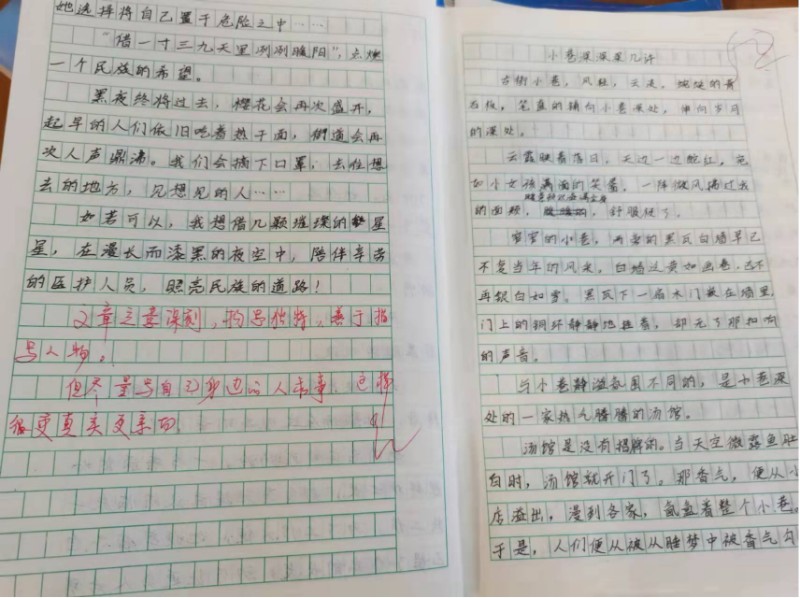 她选择将自己置于危险之中……
“借一寸三九天里冽冽暖阳”，点燃
一个民族的希望。
黑夜终将过去，樱花会再次盛开，
起早的人们依旧吃着热干面，街道会再
次人声鼎沸。我们会摘下口罩，去往想
去的地方，见想见的人……
如若可以，我想借几颗璀璨的星
星，在漫长而漆黑的夜空中，陪伴辛劳
的医护人员，照亮民族的道路！
文章立意深刻，构思独特，善于描
写人物。
但尽量写自己身边的人或事，这样
更真实更亲切
小巷深深深几许
古街小巷，风轻，云走，
石板，笔直的铺向小巷深处，伸向岁月
的深处。
云霞映着落日，天边一边酡红，
小女孩满面的笑靥，一阵微风拂过我
的面颊，舒服极了。
窄窄的小巷，两旁的黑瓦白墙早已
不复当年的风采，白墙泛黄如画卷，已不
再银白如雪，黑瓦下一扇木门嵌在墙里，
门上的铜环静静地挂着，却无了那扣响
的声音。
与小巷静谧氛围不同的，是小巷深
处的一家热气腾腾的汤馆。
汤馆是没有招牌的。当天空微露鱼肚
白时，汤馆就开门了。那香气，便从小
店溢出，漫到各家，氤氲着整个小巷。
于是，人们便从被从睡梦中被香气勾